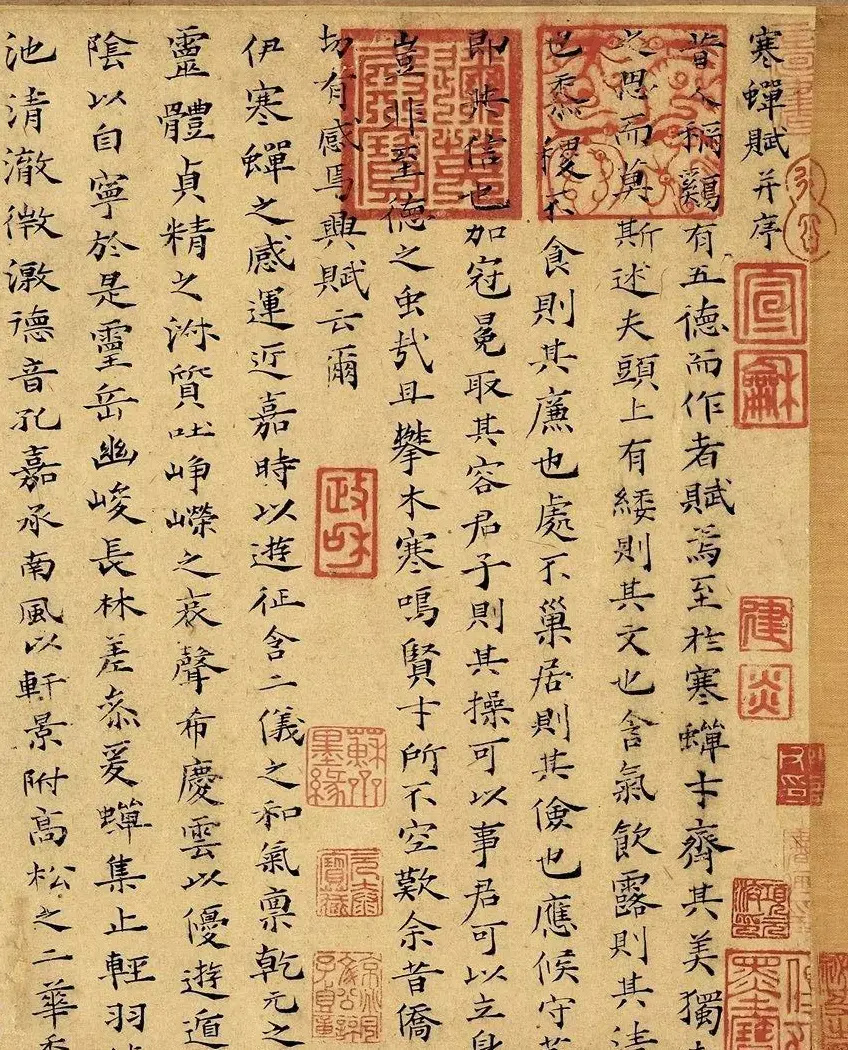 寒蟬賦并序
昔人稱鷄有五德而作者賦焉至於寒蟬才齊其美獨
之思而莫斯述夫頭上有緌則其文也含氣飲露則其清
也黍稷不食則其廉也處不巢居則其儉也應候守
即其信也加冠冕取其容君子則其操可以事君可以立身
豈非至德之虫哉且攀木寒鳴賢才所不空歎余昔僑
切有感焉興賦云爾
伊寒蟬之感運近嘉時以遊征含二儀之和氣稟乾元之
靈體貞精之淋質吐峥嶸之哀聲希慶雲以優遊遁
陰以自寧於是靈岳幽峻長林差叅爰蟬集止輕羽
池清澈微激德音孔嘉承南風以軒景附高松之二華
宣龢
建炎
政和